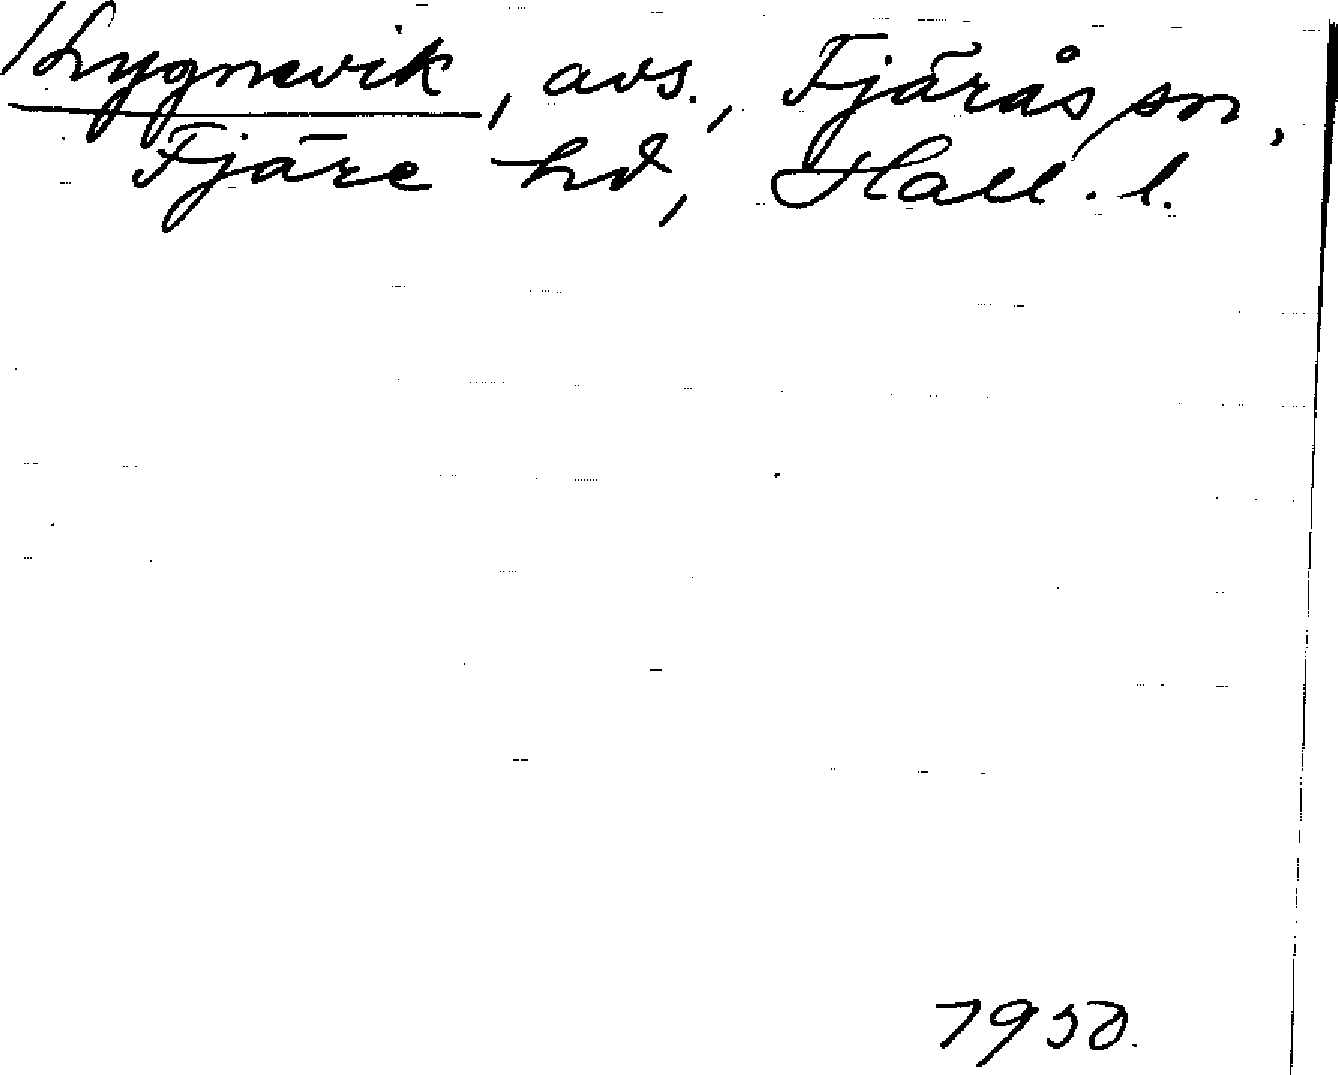 Lygnevik, avs., Fjärås sn,
Fjäre hd, Hall. l.
1950.